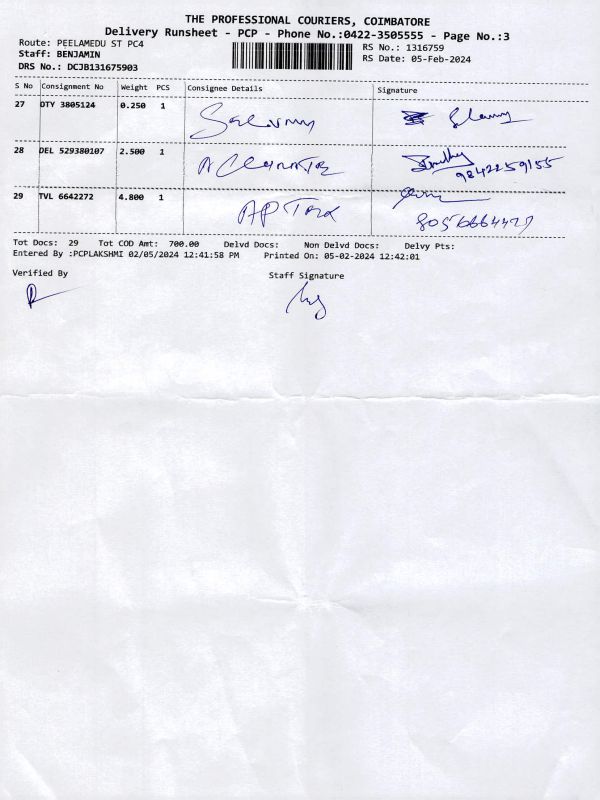 THE PROFESSIONAL COURIERS, COIMBATORE
Delivery Runsheet - PCP - Phone No.:0422-3505555 - Page No.:3
Route: PEELAMEDU ST PC4
RS No.: 1316759
Staff: BENJAMIN
RS Date: 05-Feb-2024
DRS No.: DCJB131675903
S No Consignment No Weight PCS Consignee Details Signature
27 OTY 3805124 0.250 1
28 DEL 529380107 2.500 1
9842259155
29 TVL 6642272 4.800 1
Tot Docs: 29 Tot COD Amt: 700.00 Delvd Docs: Non Delvd Docs: Delvy Pts:
Entered By :PCPLAKSHMI 02/05/2024 12:41:58 PM Printed On: 05-02-2024 12:42:01
Verified By Staff Signature